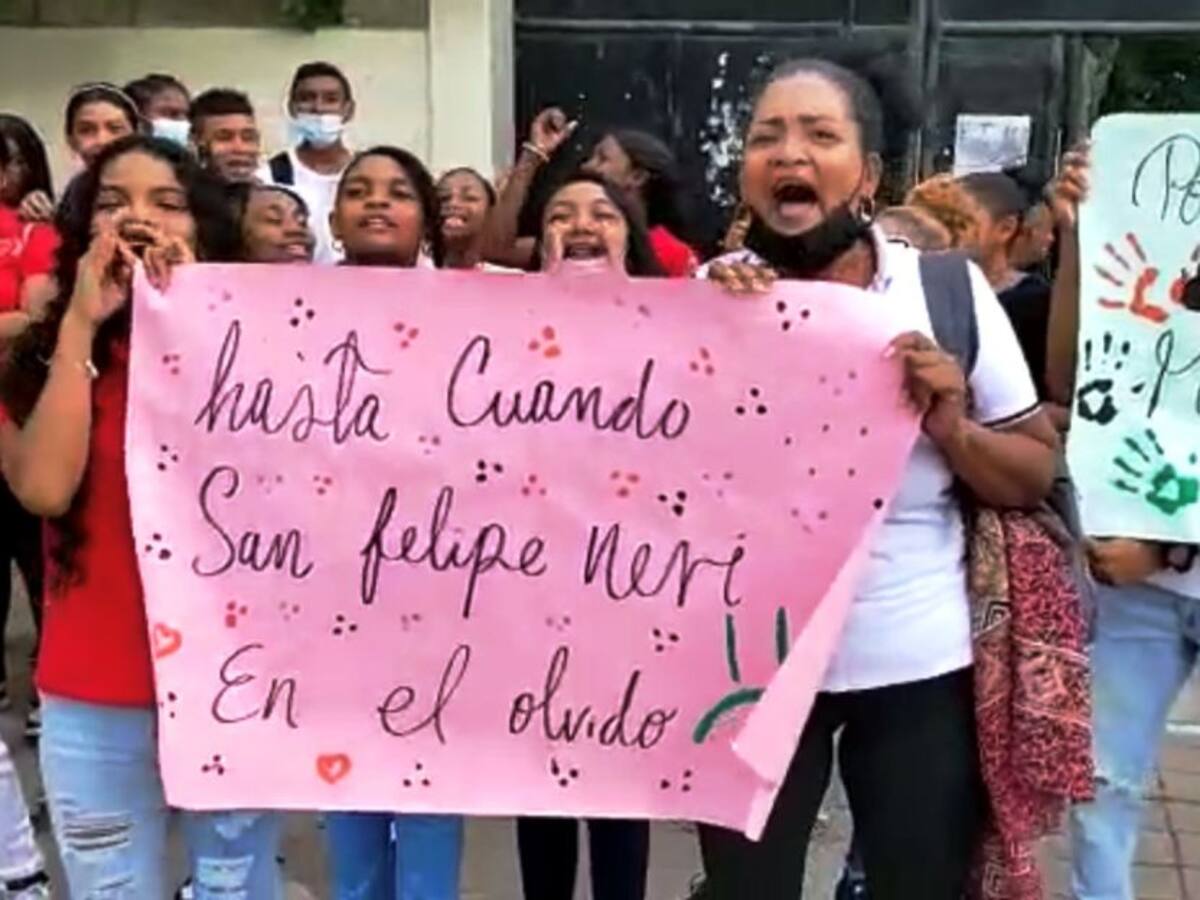 hasta Cuando
San felipe Neri
En el olvido